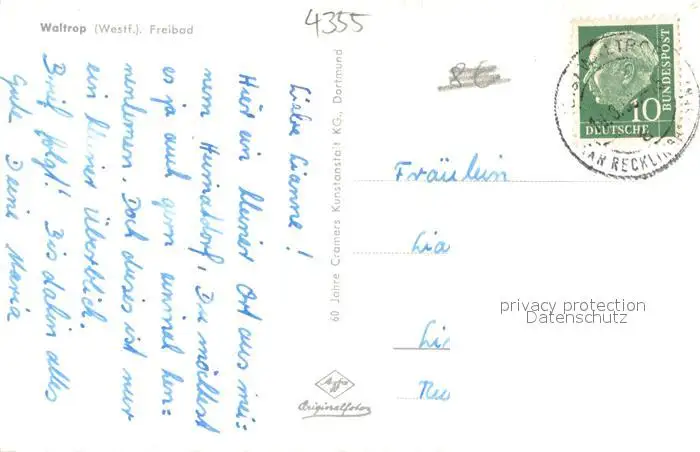 Waltrop (Westf.). Freibad
4355
8 €
Liebe Lianne!
Hier ein kleiner Ort aus mei=
nem Heimatdorf, Du möchtest
es ja auch gern einmal ken=
nenlernen. Doch dieses ist nur
ein kleiner Überblick.
Brief folgt! Bis dahin alles
Gute Deine Maria
60 Jahre Cramers Kunstanstalt KG., Dortmund
Agfa
Originalfoto
Fräulein
Lia
Li
Neu
privacy protection
Datenschutz
10
DEUTSCHE
BUNDESPOST
WALTROP
RECKLINGH